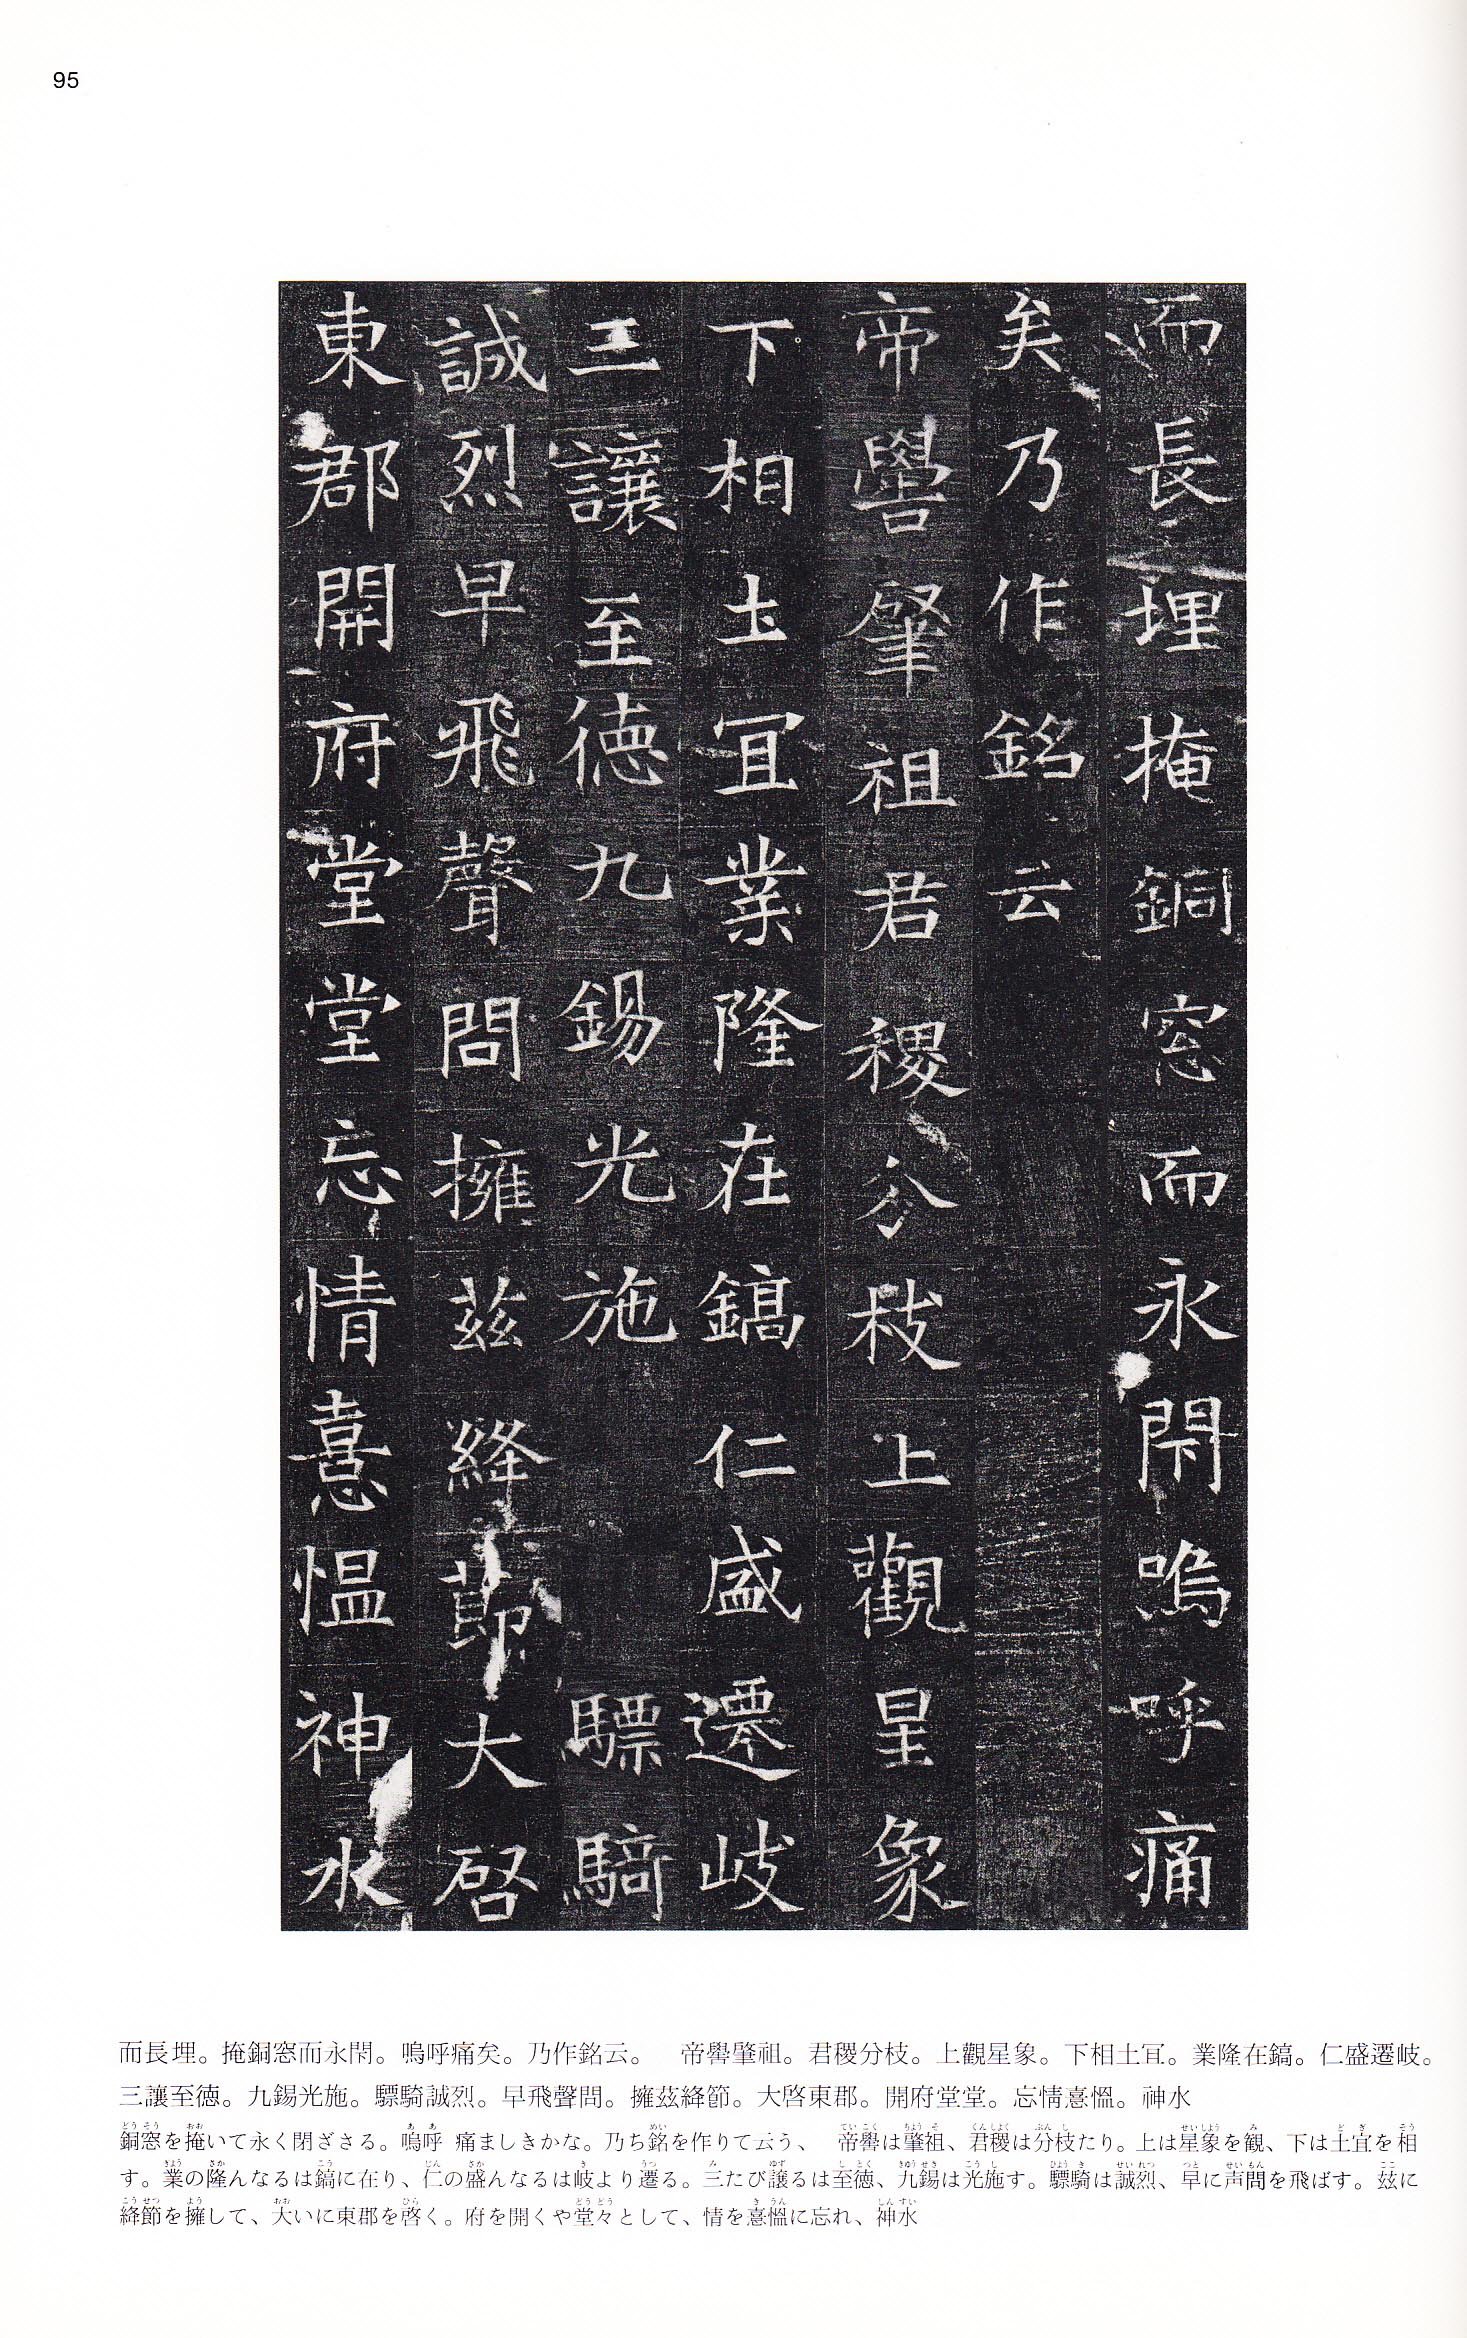 95
而長埋掩銅窓而永閇嗚呼痛
矣乃作銘云
帝嚳肇祖君稷分枝上觀星象
下相土冝業隆在鎬仁盛遷岐
三讓至徳九錫光施驃騎
誠烈早飛聲問擁茲絳節大啓
東郡開府堂堂忘情憙愠神水
而長埋。掩銅窓而永閇。嗚呼痛矣。乃作銘云。　帝嚳肇祖。君稷分枝。上觀星象。下相土冝。業隆在鎬。仁盛遷岐。
三讓至徳。九錫光施。驃騎誠烈。早飛聲問。擁茲絳節。大啓東郡。開府堂堂。忘情憙慍。神水
銅窓を掩いて永く閉ざさる。嗚呼 痛ましきかな。乃ち銘を作りて云う、　帝嚳は肇祖、君稷は分枝たり。上は星象を観、下は土宜を相
す。業の隆んなるは鎬に在り、仁の盛んなるは岐より遷る。三たび譲るは至徳、九錫は光施す。驃騎は誠烈、早に声問を飛ばす。茲に
絳節を擁して、大いに東郡を啓く。府を開くや堂々として、情を憙慍に忘れ、神水